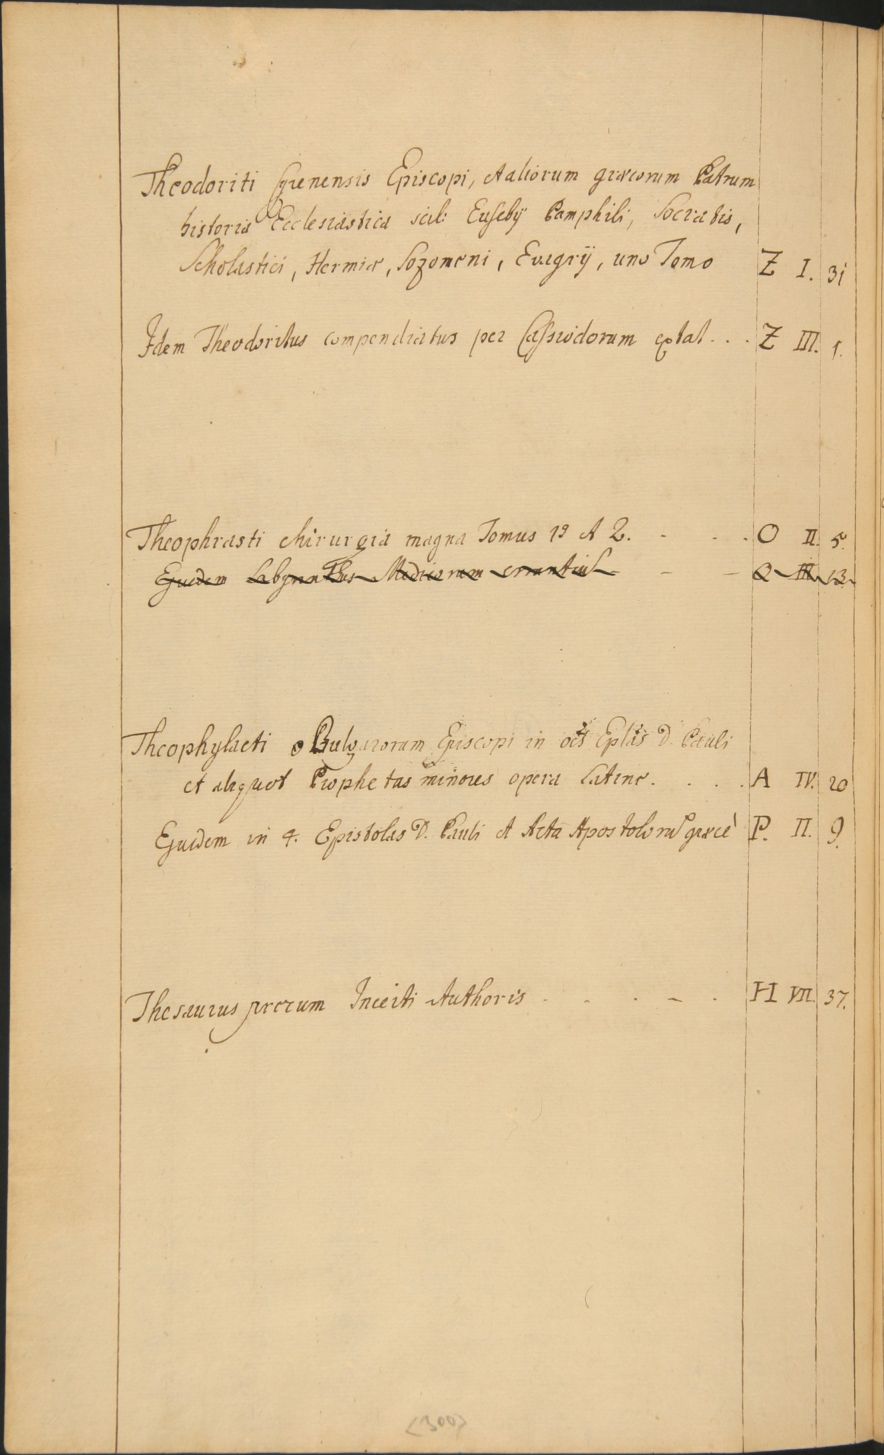 Theodoriti Cyrenensis Episcopi, et aliorum græcorum Patrum
historia Ecclesiastica scil: Eusebÿ Pamphili, Socratis,
Scholastici, Hermiæ, Sozomeni, Evagrÿ, uno Tomo Z I. 31
Idem Theodoritus compendiatus per Cassiodorum extat . . . Z III. 1.
Theophrasti chirurgia magna Tomus 1９ et 2. - - . . O II. 5.
Ejusdem Labyrinthus Medicorum errantium - - O III. 13.
Theophylacti Bulgarorum Episcopi in oēs Eplās D. Pauli
et aliquot Prophetas minores opera Latine. . . . A IV. 20
Ejusdem in 4. Epistolas D. Pauli et Acta Apostolorū græcè P. II. 9.
Thesaurus precum Incerti Authoris - . . - . H VII. 37.
<300>